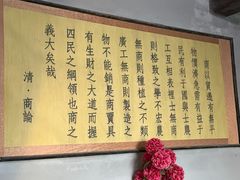 商以貿遷有無平
物價濟急需有益于
民有利于國與士農
工互相表裡士無商
則格致之學不宏農
無商則種植之不類
廣工無商則製造之
物不能銷是商賈具
有生財之大道而握
四民之綱領也商之
義大矣哉
清·商論